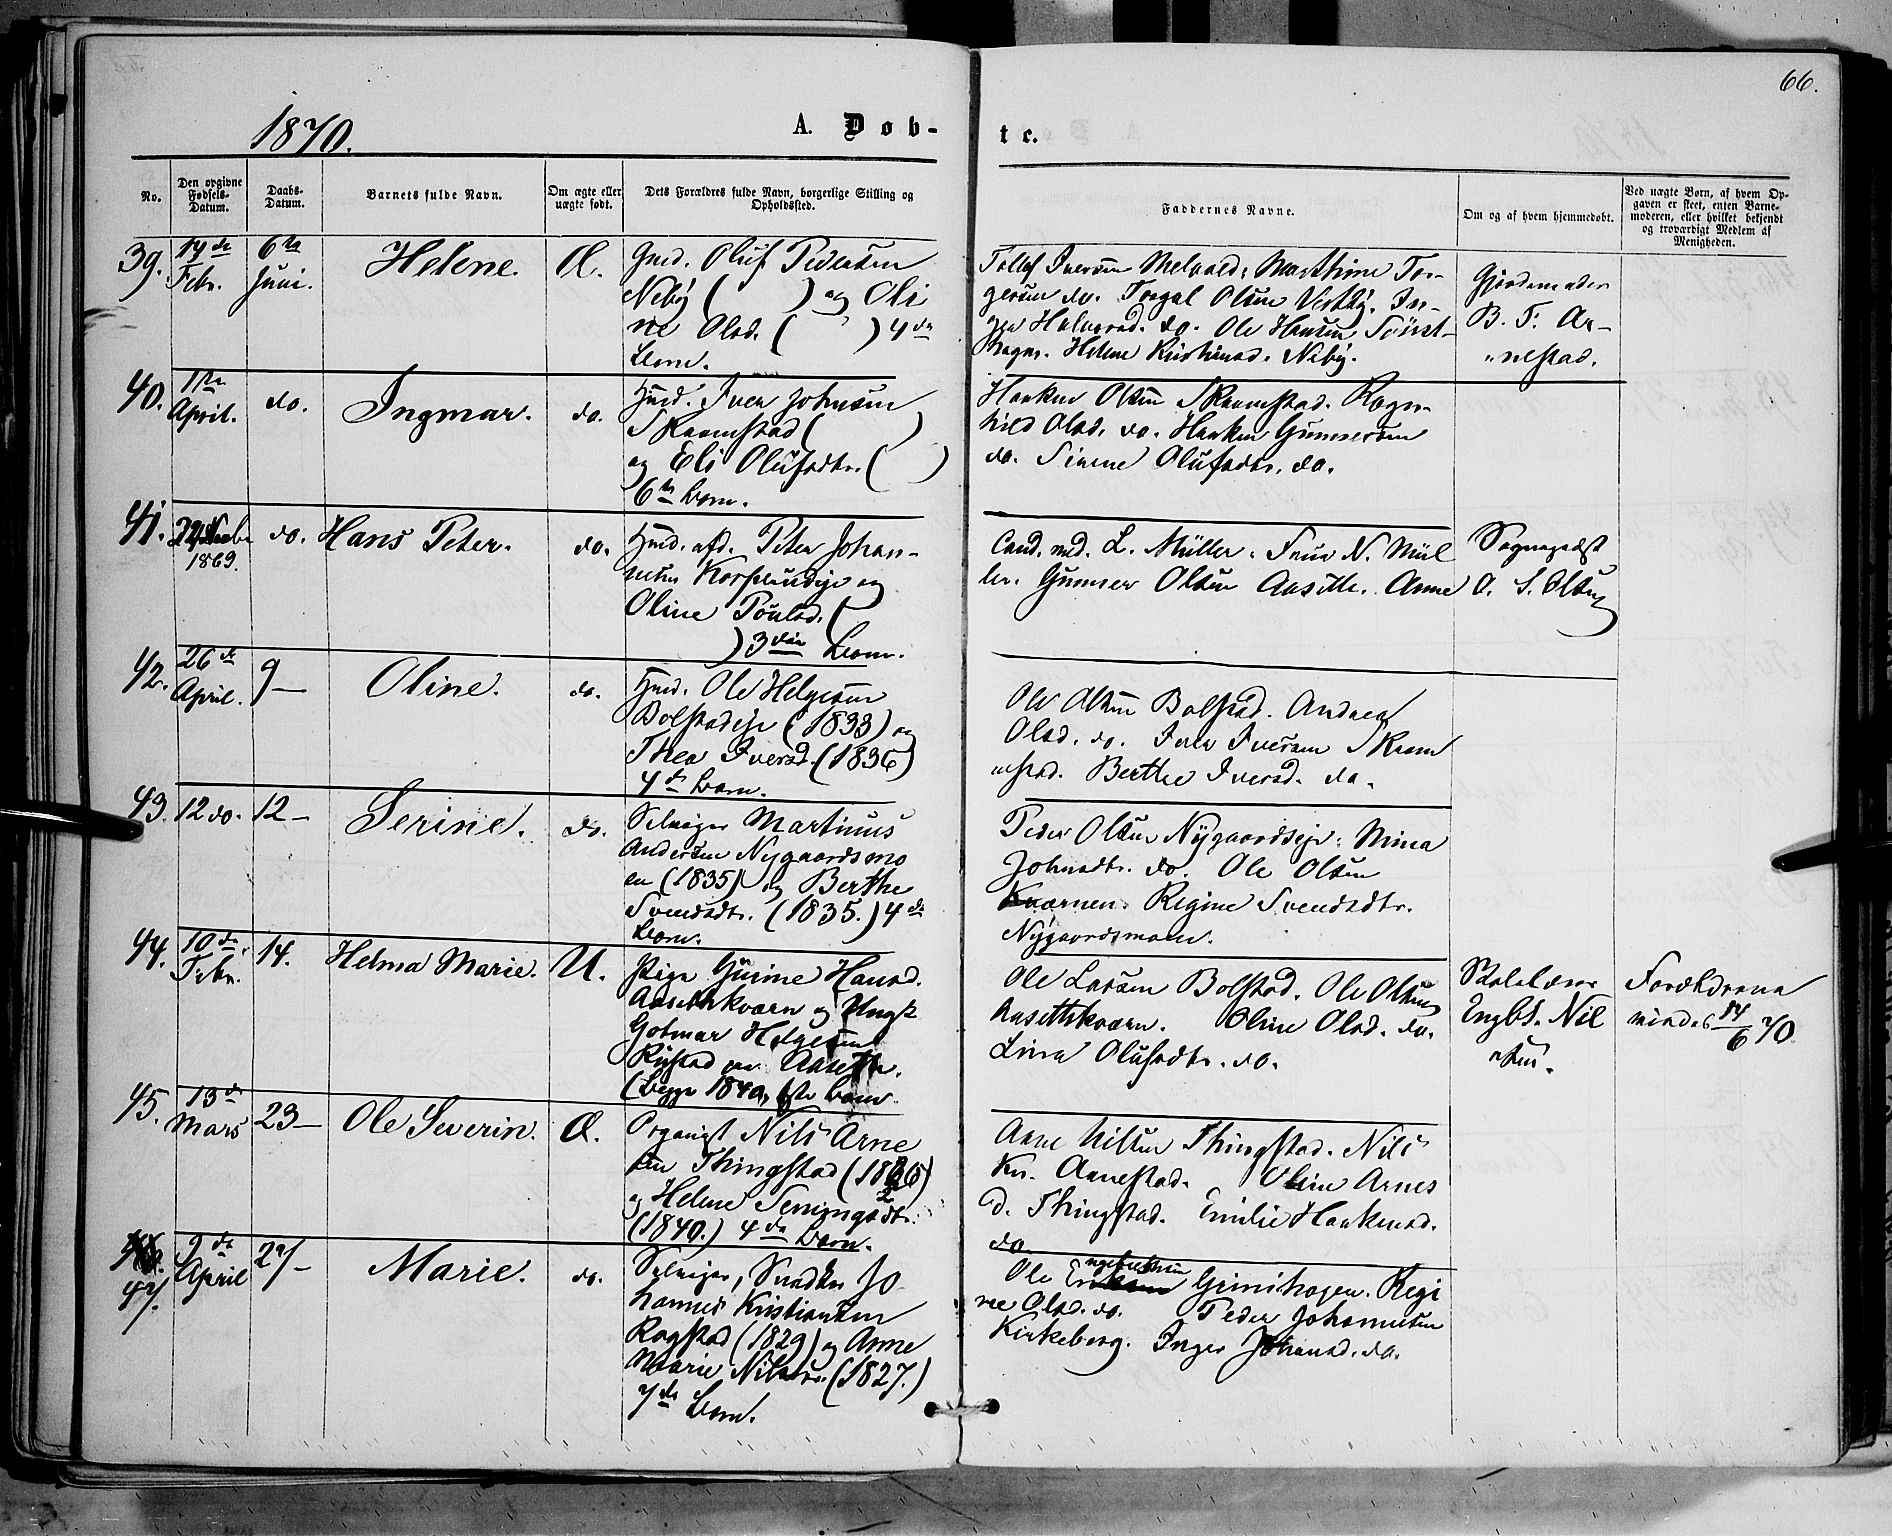 66.
1870.
A. Døb-
te.
No.
Den opgivne Fødsels-Datum.
Daabs-Datum.
Barnets fulde Navn.
Om ægte eller uægte født.
Dets Forældres fulde Navn, borgerlige Stilling og Opholdssted.
Faddernes Navne.
Om og af hvem hjemmedøbt.
Ved uægte Børn, af hvem Opgaven er skeet, enten Barnemoderen, eller hvilket bekjendt og troværdigt Medlem af Menigheden.
39. 14de Febr. 6te Juni. Helene. Æ.
Gmd. Oluf Pedersen
Neby ( ) og Oli
ne Olsd. ( ) 4de
Barn.
Tollef Iversen Melvold. Marthine Tor-
gersen do. Torgal Olsen Vestby. In-
ger Halvorsd. do. Ole Hansen
Helene Kristiansd. Neby.
Gjordemoder
B. T. Ar-
nestad.
40. 1ste April. do. Ingmar. do.
Hmd. Iver Johnsen
Skramstad ( )
og Eli Olufsdtr. ( )
6te Barn.
Haaken Olsen Skramstad. Ragn-
hild Olsd. do. Haaken Gunnersen
do. Sinne Olufsdtr. do.
41. 1869. do. Hans Peter. do.
Hmd. afd. Peter Johan-
nesen og
Oline Poulsd. (
) 3die Barn.
Cand. med. L. Müller. Frue N. Mül
ler. Gunner Olsen Aasette. Anne
Sognepræst
O. S. Olsen
42. 26de April. 9 — Oline. do.
Hmd. Ole Helgesen
Bolstadeje (1833) og
Thea Iversd. (1836)
4de Barn.
Ole Olsen Bolstad. Andrea
Olsd. do. Iver Iversen Skram
stad. Berthe Iversd. do.
43. 12 do. 12 — Serine. do.
Selveier Martinus
Andersen Nygaardsmo
en (1835) og Berthe
Svendsdtr. (1835.) 4de
Barn.
Peder Olsen Nygaardseje. Mina
Johnsdtr. do. Ole Olsen
Kværnen. Regine Svendsdtr.
Nygaardsmoen.
44. 10de Febr. 14. Helma Marie. U.
Pige Gurine Hansd.
Aasethkværn og Ungk.
Gotmar Helgesen
Rustad
(begge 1840, 1ste Barn.
Ole Larsen Bolstad. Ole Olsen
Aasetkværn. Oline Olsd. do.
Lina Olufsdtr. do.
Skolelærer
Engbt. Nil
sen.
Forældrene
14/6 70
45. 13de Mars 23 — Ole Severin. Æ.
Organist Nils Arne
sen Thingstad
og Helene Semmingsdtr.
(1840.) 4de Barn.
Arne Nilsen Thingstad. Nils
Kr. Arnestad. Oline Arnes
d. Thingstad. Emilie Haakensd.
do.
47. 9de April 27 — Marie. do.
Selveier, Snedker Jo
hannes Kristiansen
Rogstad (1829) og Anne
Marie Nilsdtr. (1827.)
7de Barn.
Ole Grinihagen. Regi
ne Olsd. do. Peder Johannesen
Kirkeberg. Inger Johansd. do.